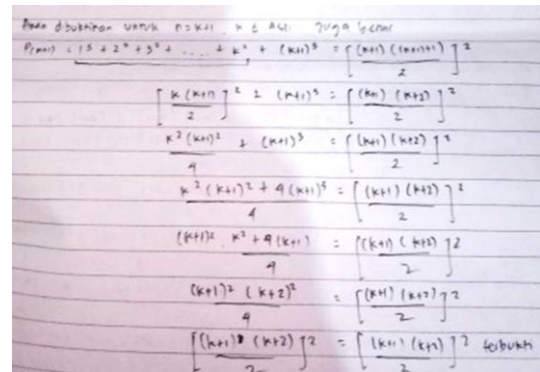 Akan dibuktikan untuk n = k+1, k ∈ Asli juga benar
P(k+1) = 1³ + 2³ + 3³ + .... + k³ + (k+1)³ = [ (k+1) ((k+1)+1) / 2 ]²
[ k (k+1) / 2 ]² + (k+1)³ = [ (k+1) (k+2) / 2 ]²
k² (k+1)² / 4 + (k+1)³ = [ (k+1) (k+2) / 2 ]²
k² (k+1)² + 4 (k+1)³ / 4 = [ (k+1) (k+2) / 2 ]²
(k+1)² . k² + 4 (k+1) / 4 = [ (k+1) (k+2) / 2 ]²
(k+1)² (k+2)² / 4 = [ (k+1) (k+2) / 2 ]²
[ (k+1) (k+2) / 2 ]² = [ (k+1) (k+2) / 2 ]² terbukti